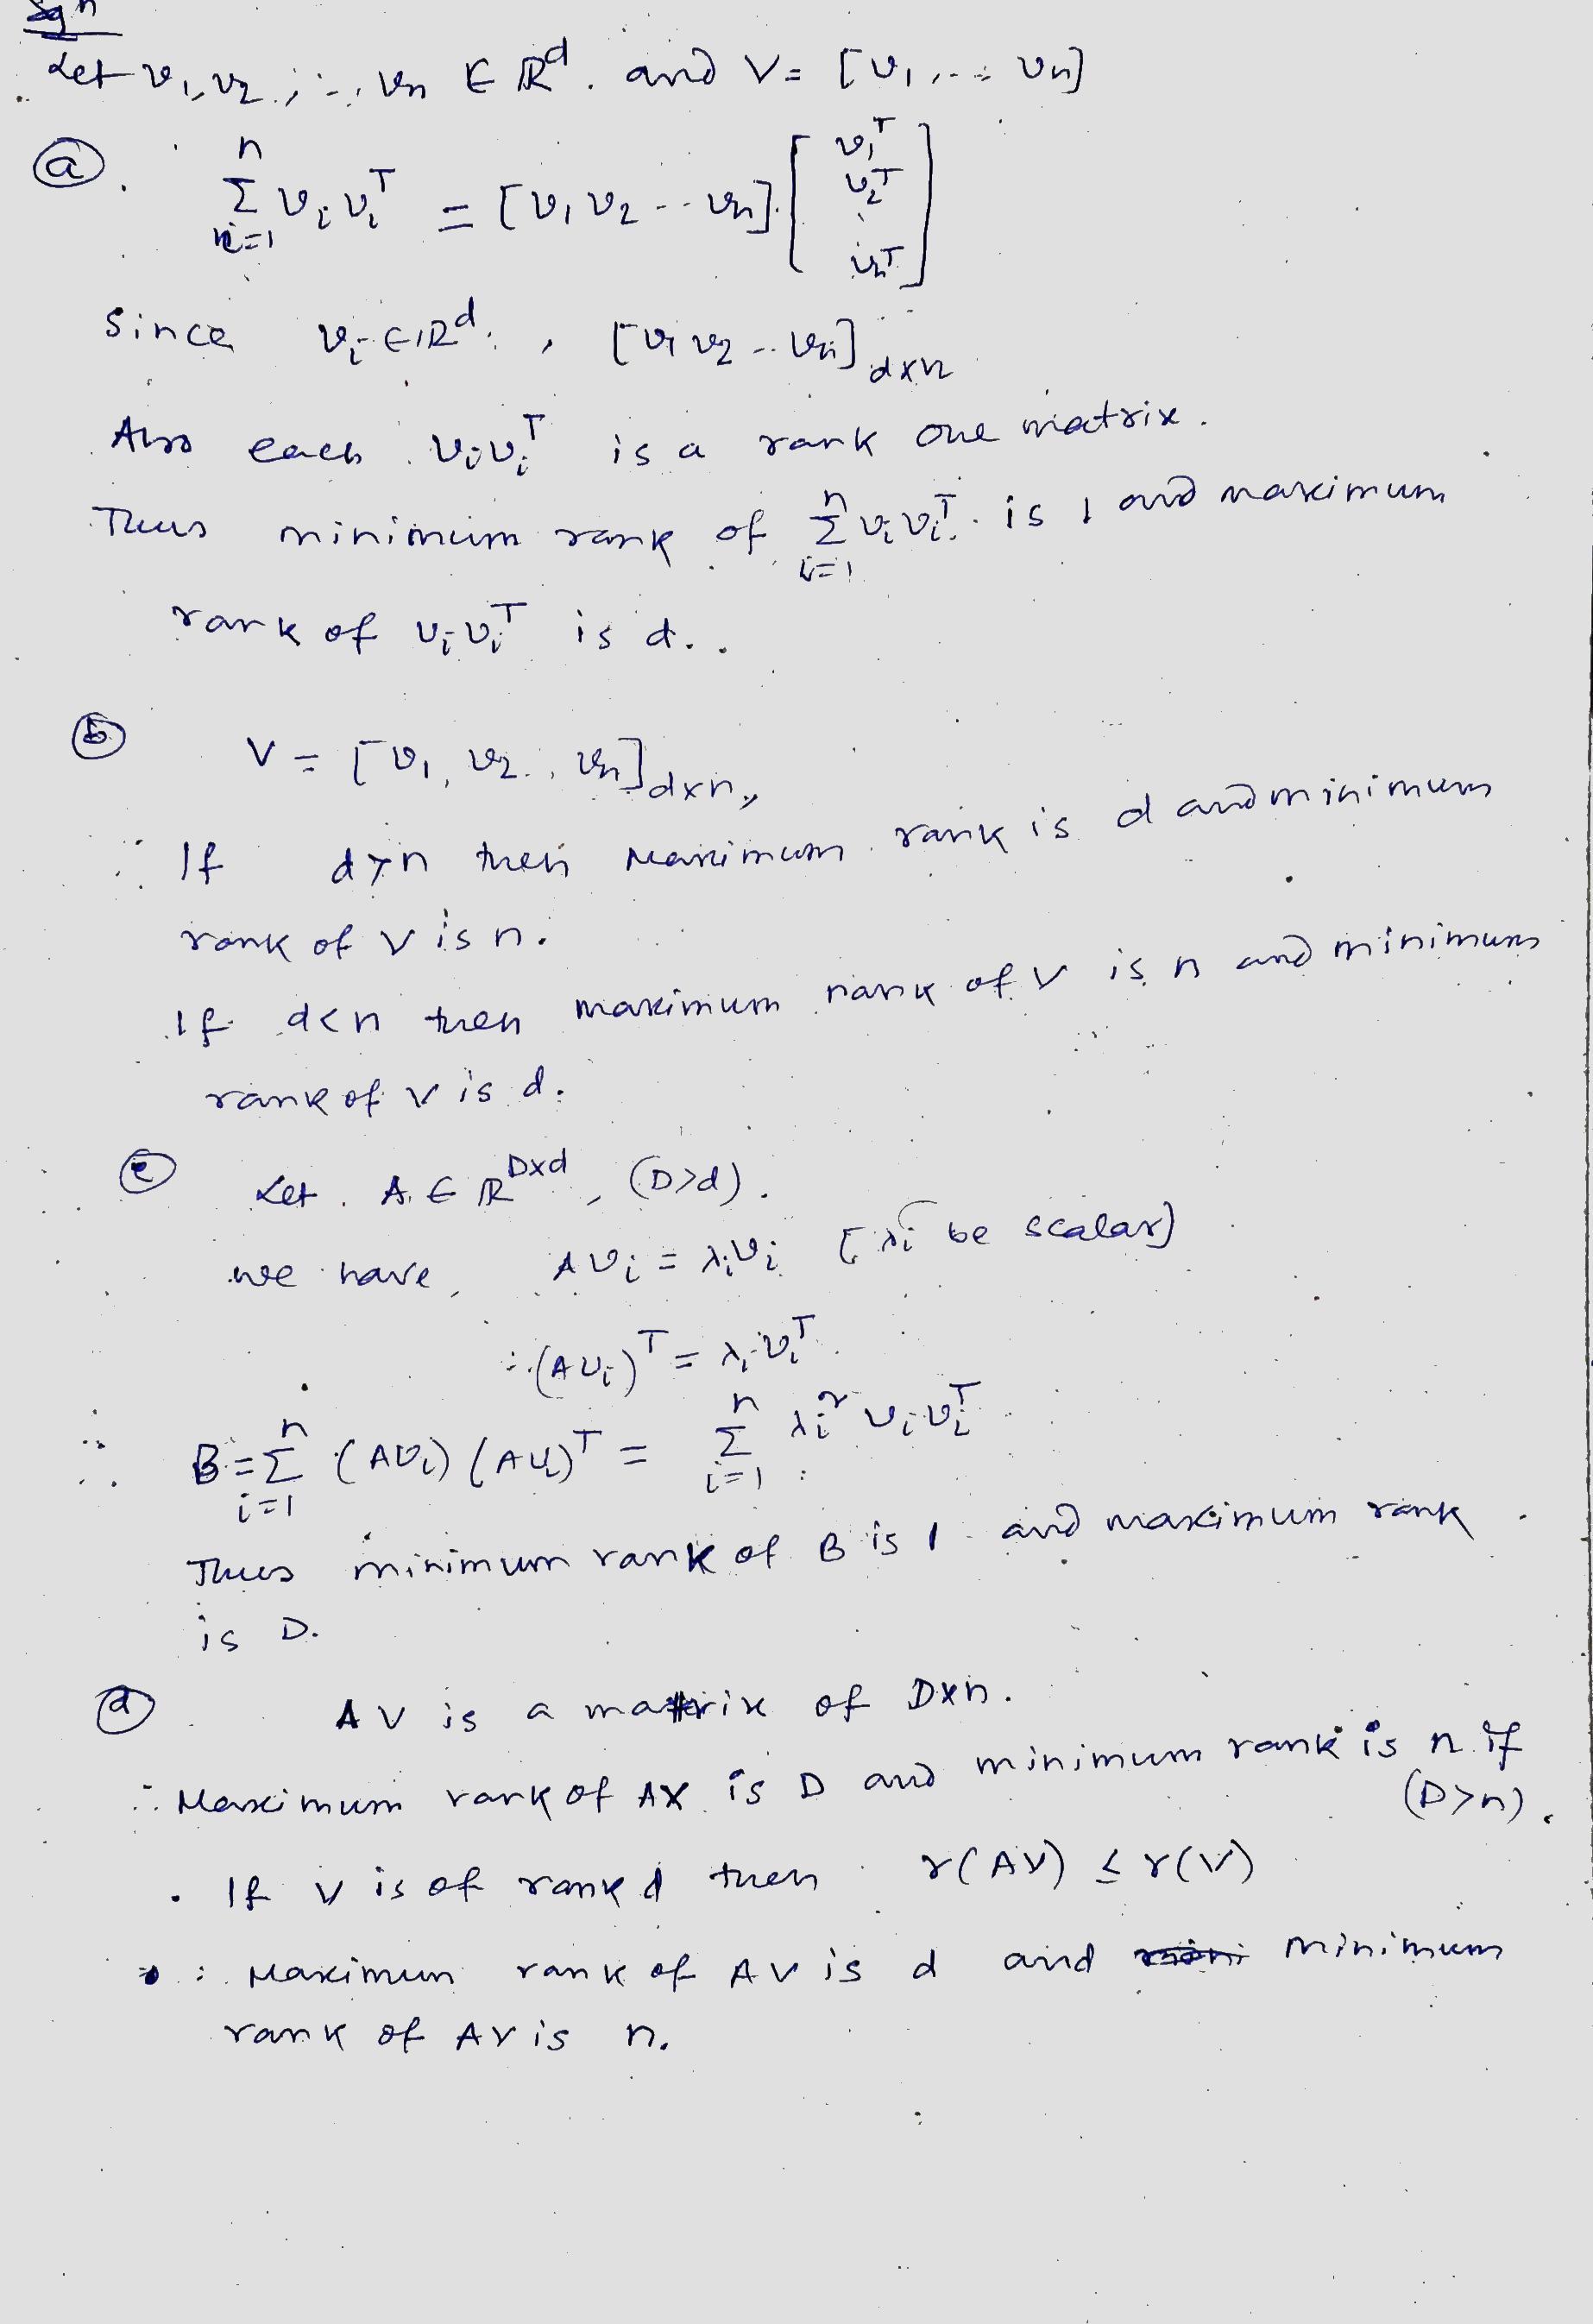 Sol^n
Let v₁, v₂, ..., vn ∈ ℝ^d. and V = [v₁, ... vn]
(a). n
Σ vᵢvᵢ^T = [v₁ v₂ -- vn]. [ v₁^T
i=1 v₂^T
⋮
vn^T ]
Since vᵢ ∈ ℝ^d., [v₁ v₂ .. vn] d×n
Also each vᵢvᵢ^T is a rank one matrix.
Thus minimum rank of Σ_{i=1}^n vᵢvᵢ^T. is 1 and maximum
rank of vᵢvᵢ^T is d..
(b) V = [v₁, v₂ .., vn] d×n,
∴ If d>n then Maximum rank is d and minimum
rank of V is n.
If d<n then maximum rank of V is n and minimum
rank of V is d.
(c) Let. A ∈ ℝ^{D×d}, (D>d).
we have, Avᵢ = λᵢvᵢ [λᵢ be scalar]
∴ (Avᵢ)^T = λᵢvᵢ^T.
∴ B = Σ_{i=1}^n (Avᵢ)(Avᵢ)^T = Σ_{i=1}^n λᵢ² vᵢvᵢ^T
Thus minimum rank of B is 1 and maximum rank
is D.
(d) AV is a matrix of D×n.
∴ Maximum rank of AX is D and minimum rank is n if
(D>n).
. If V is of rank d then r(AV) ≤ r(V)
∴ Maximum rank of AV is d and minimum
rank of AV is n.